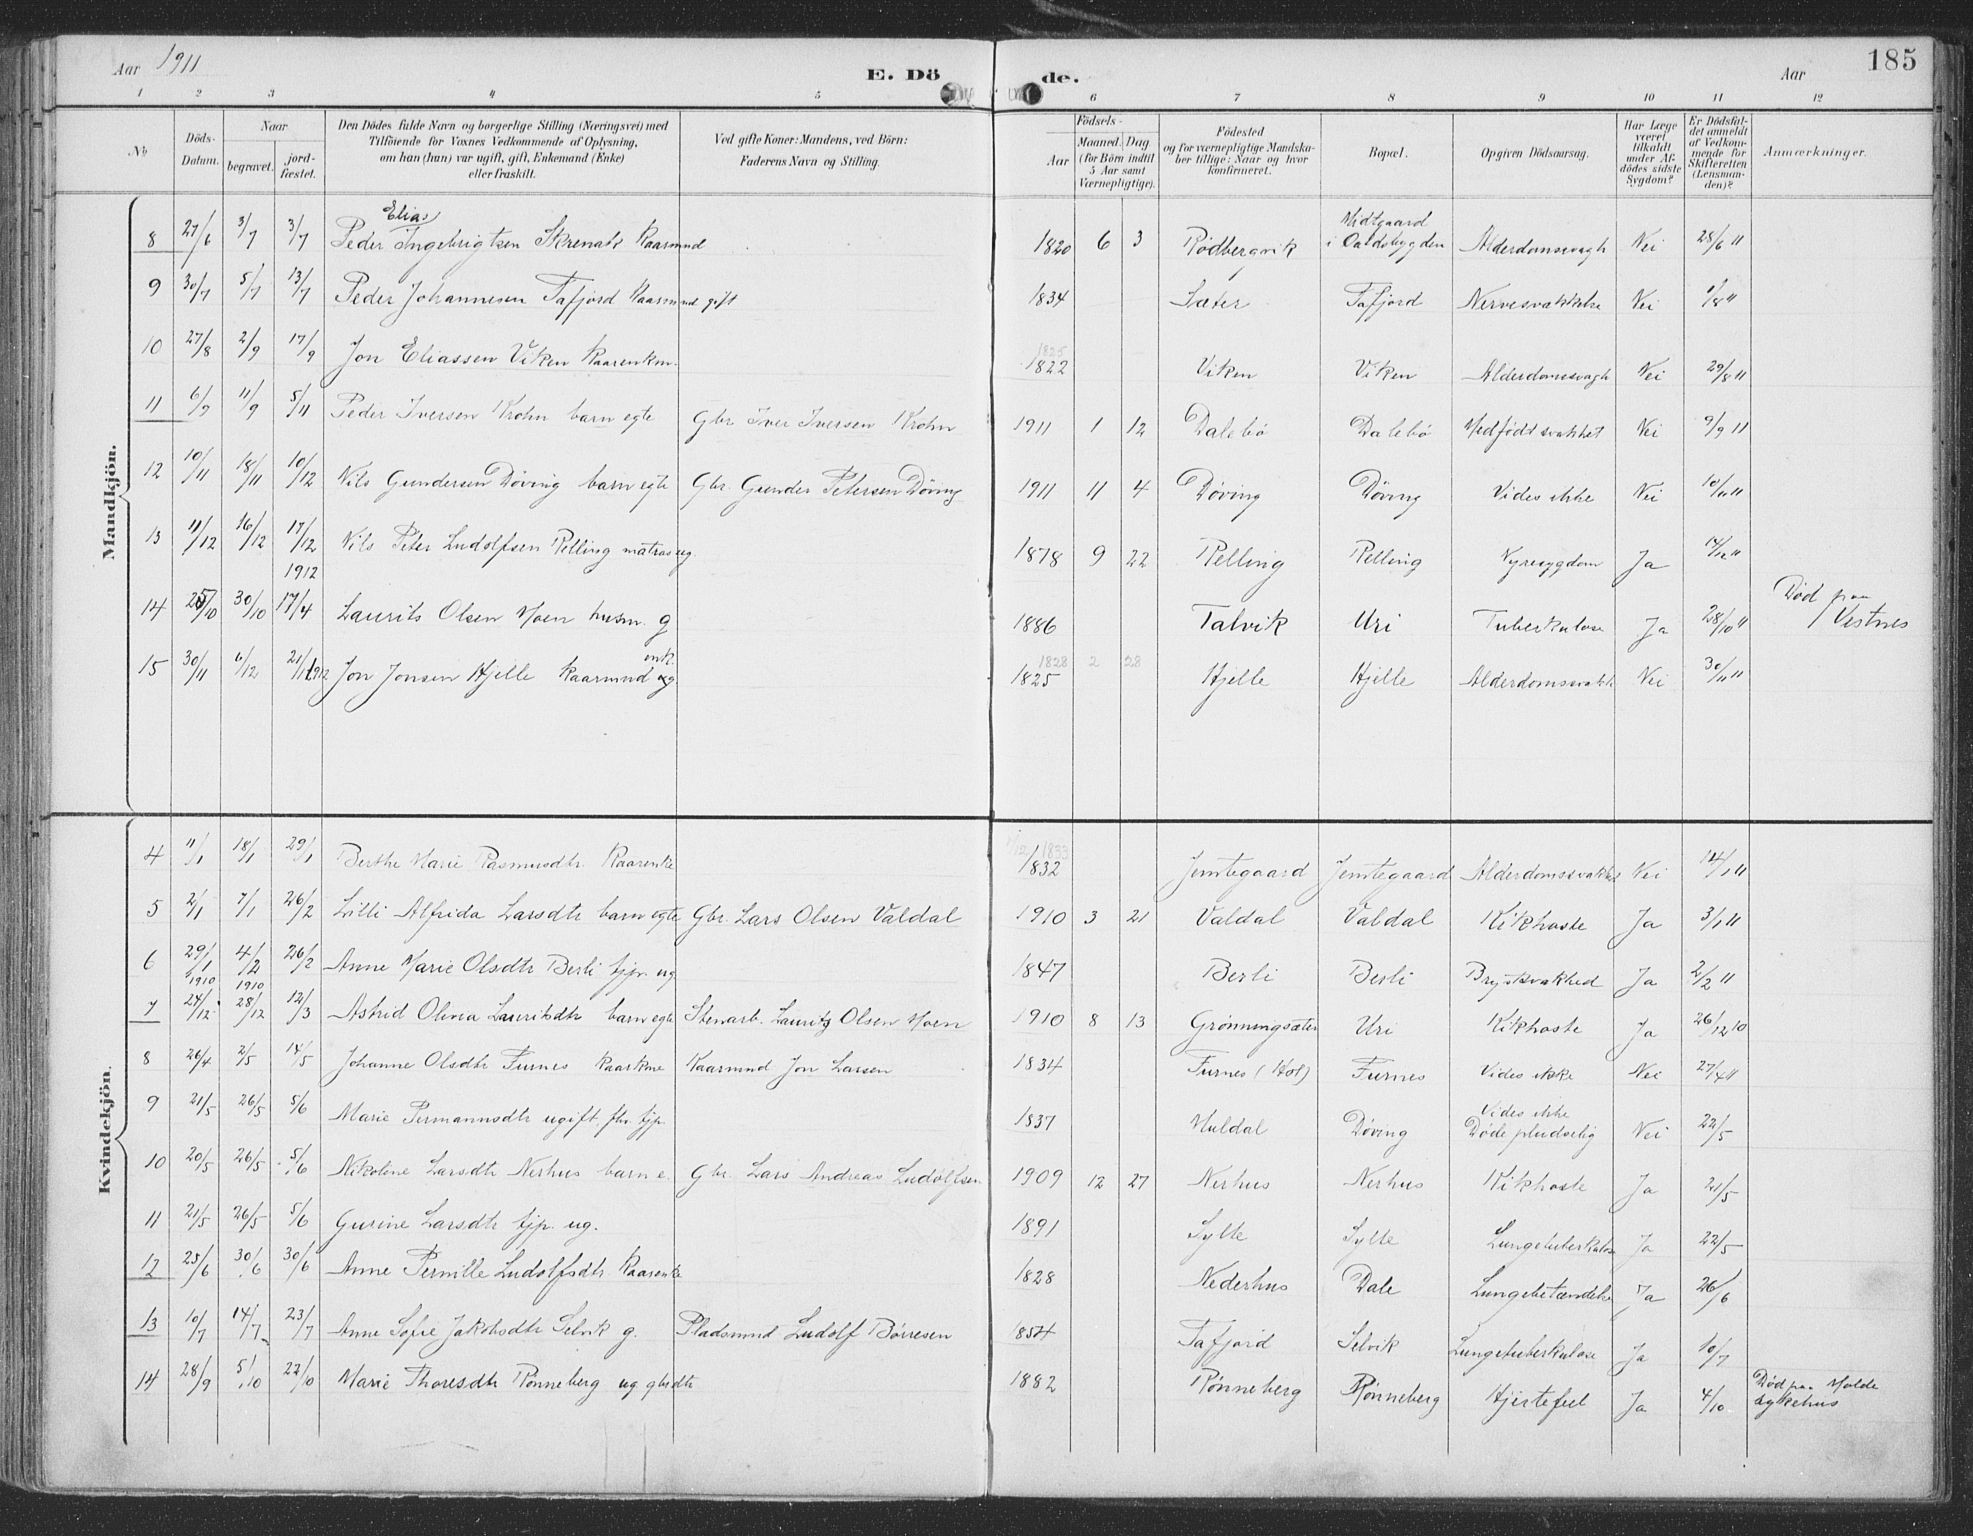 Aar 1911 E. Dö de. Aar 185
1 2 3 4 5 6 7 8 9 10 11 12
No
Döds-Datum.
Naar
begravet.
jord-fæstet.
Den Dödes fulde Navn og borgerlige Stilling (Næringsvei) med
Tilföiende for Voxnes Vedkommende af Oplysning,
om han (hun) var ugift, gift, Enkemand (Enke)
eller fraskilt.
Ved gifte Koner: Mandens, ved Börn:
Faderens Navn og Stilling.
Födsels-
Aar
Maaned. Dag
(for Börn indtil
5 Aar samt
Værnepligtige).
Födested
og for værnepligtige Mandska-
ber tillige: Naar og hvor
konfirmeret.
Bopæl.
Opgiven Dödsaarsag.
Har Læge
været
tilkaldt
under Af-
dödes sidste
Sygdom?
Er Dödsfal-
det anmeldt
af Vedkom-
mende for
Skifteretten
(Lensman-
den)?
Anmærkninger.
Mandkjön.
Elias
8 27/6 3/7 3/7 Peder Ingebrigtsen Skrenak Kaarmnd 1820 6 3 Rødbergvik Midtgaard
i Oaldsbygden Alderdomssvagh Nei 28/6 "
9 30/7 5/7 13/7 Peder Johannesen Tafjord Kaarmnd gift 1834 Sæter Tafjord Nervesvækkelse Nei 1/8 "
10 27/8 2/9 17/9 Jon Eliassen Viken Kaarenkm. 1825
1822 Viken Viken Alderdomssvagh Nei 29/8 "
11 6/9 11/9 5/11 Peder Iversen Krohn barn egte Gbr Iver Iversen Krohn 1911 1 12 Dalebø Dalebø Medfödt svakhet Nei 9/9 11
12 10/11 18/11 10/12 Nils Gundersen Døving barn egte Gbr. Gunder Petersen Døving 1911 11 4 Døving Døving Vides ikke Nei 10/11 "
13 11/12 16/12 17/12 Nils Peter Ludolfsen Relling matros ug. 1878 9 22 Relling Relling Nyresygdom Ja 14/12 "
1912
14 25/10 30/10 17/4 Laurits Olsen Moen husm. g 1886 Talvik Uri Tuberkulose Ja 28/10 " Död paa
Vestnes
enk.
15 30/11 6/12 21/1 1912 Jon Jonsen Hjelle Kaarmnd 1828 2 28
1825 Hjelle Hjelle Alderdomssvakh Nei 30/11 "
Kvindekjön.
4 11/1 18/1 29/1 Berthe Marie Rasmusdtr. Kaarenke 1833
1832 Jemtegaard Jemtegaard Alderdomssvakhed Nei 14/1 "
5 2/1 7/1 26/2 Lilli Alfrida Larsdtr barn egte Gbr. Lars Olsen Valdal 1910 3 21 Valdal Valdal Kikhoste Ja 3/1 11
6 29/1 4/2 26/2 Anne Marie Olsdtr Berli tjp. ug 1847 Berli Berli Brystsvakhed Ja 2/2 11
1910 1910
7 24/12 28/12 12/3 Astrid Olivia Lauritsdtr barn egte Stenarb. Lauritz Olsen Moen 1910 8 13 Grønningsæter Uri Kikhoste Ja 26/12 10
8 26/4 2/5 14/5 Johanne Olsdtr Furnes Kaarkone Kaarmnd Jon Larsen 1834 Furnes (Hol) Furnes Vides ikke Nei 27/4 11
9 21/5 26/5 5/6 Marie Permannsdtr ugift fhv. tjp. 1837 Muldal Døving Vides ikke
Døde pludselig Nei 22/5
10 20/5 26/5 5/6 Nikoline Larsdtr Nerhus barn e. Gbr. Lars Andreas Ludolfsen 1909 12 27 Nerhus Nerhus Kikhoste Ja 21/5
11 21/5 26/5 5/6 Gurine Larsdtr tjp. ug. 1891 Sylte Sylte Lungetuberkulose Ja 22/5
12 25/6 30/6 30/6 Anne Pernille Ludolfsdtr Kaarenke 1828 Nederhus Dale Lungebetændelse Ja 26/6
13 10/7 14/7 23/7 Anne Sofie Jakobsdtr Selvik g. Pladsmnd Ludolf Børresen 1854 Tafjord Selvik Lungetuberkulose Ja 10/7
14 28/9 5/10 22/10 Marie Thoresdtr Rønneberg ug gbrdtr 1882 Rønneberg Rønneberg Hjertefeil Ja 4/10 Död paa Molde
sykehus